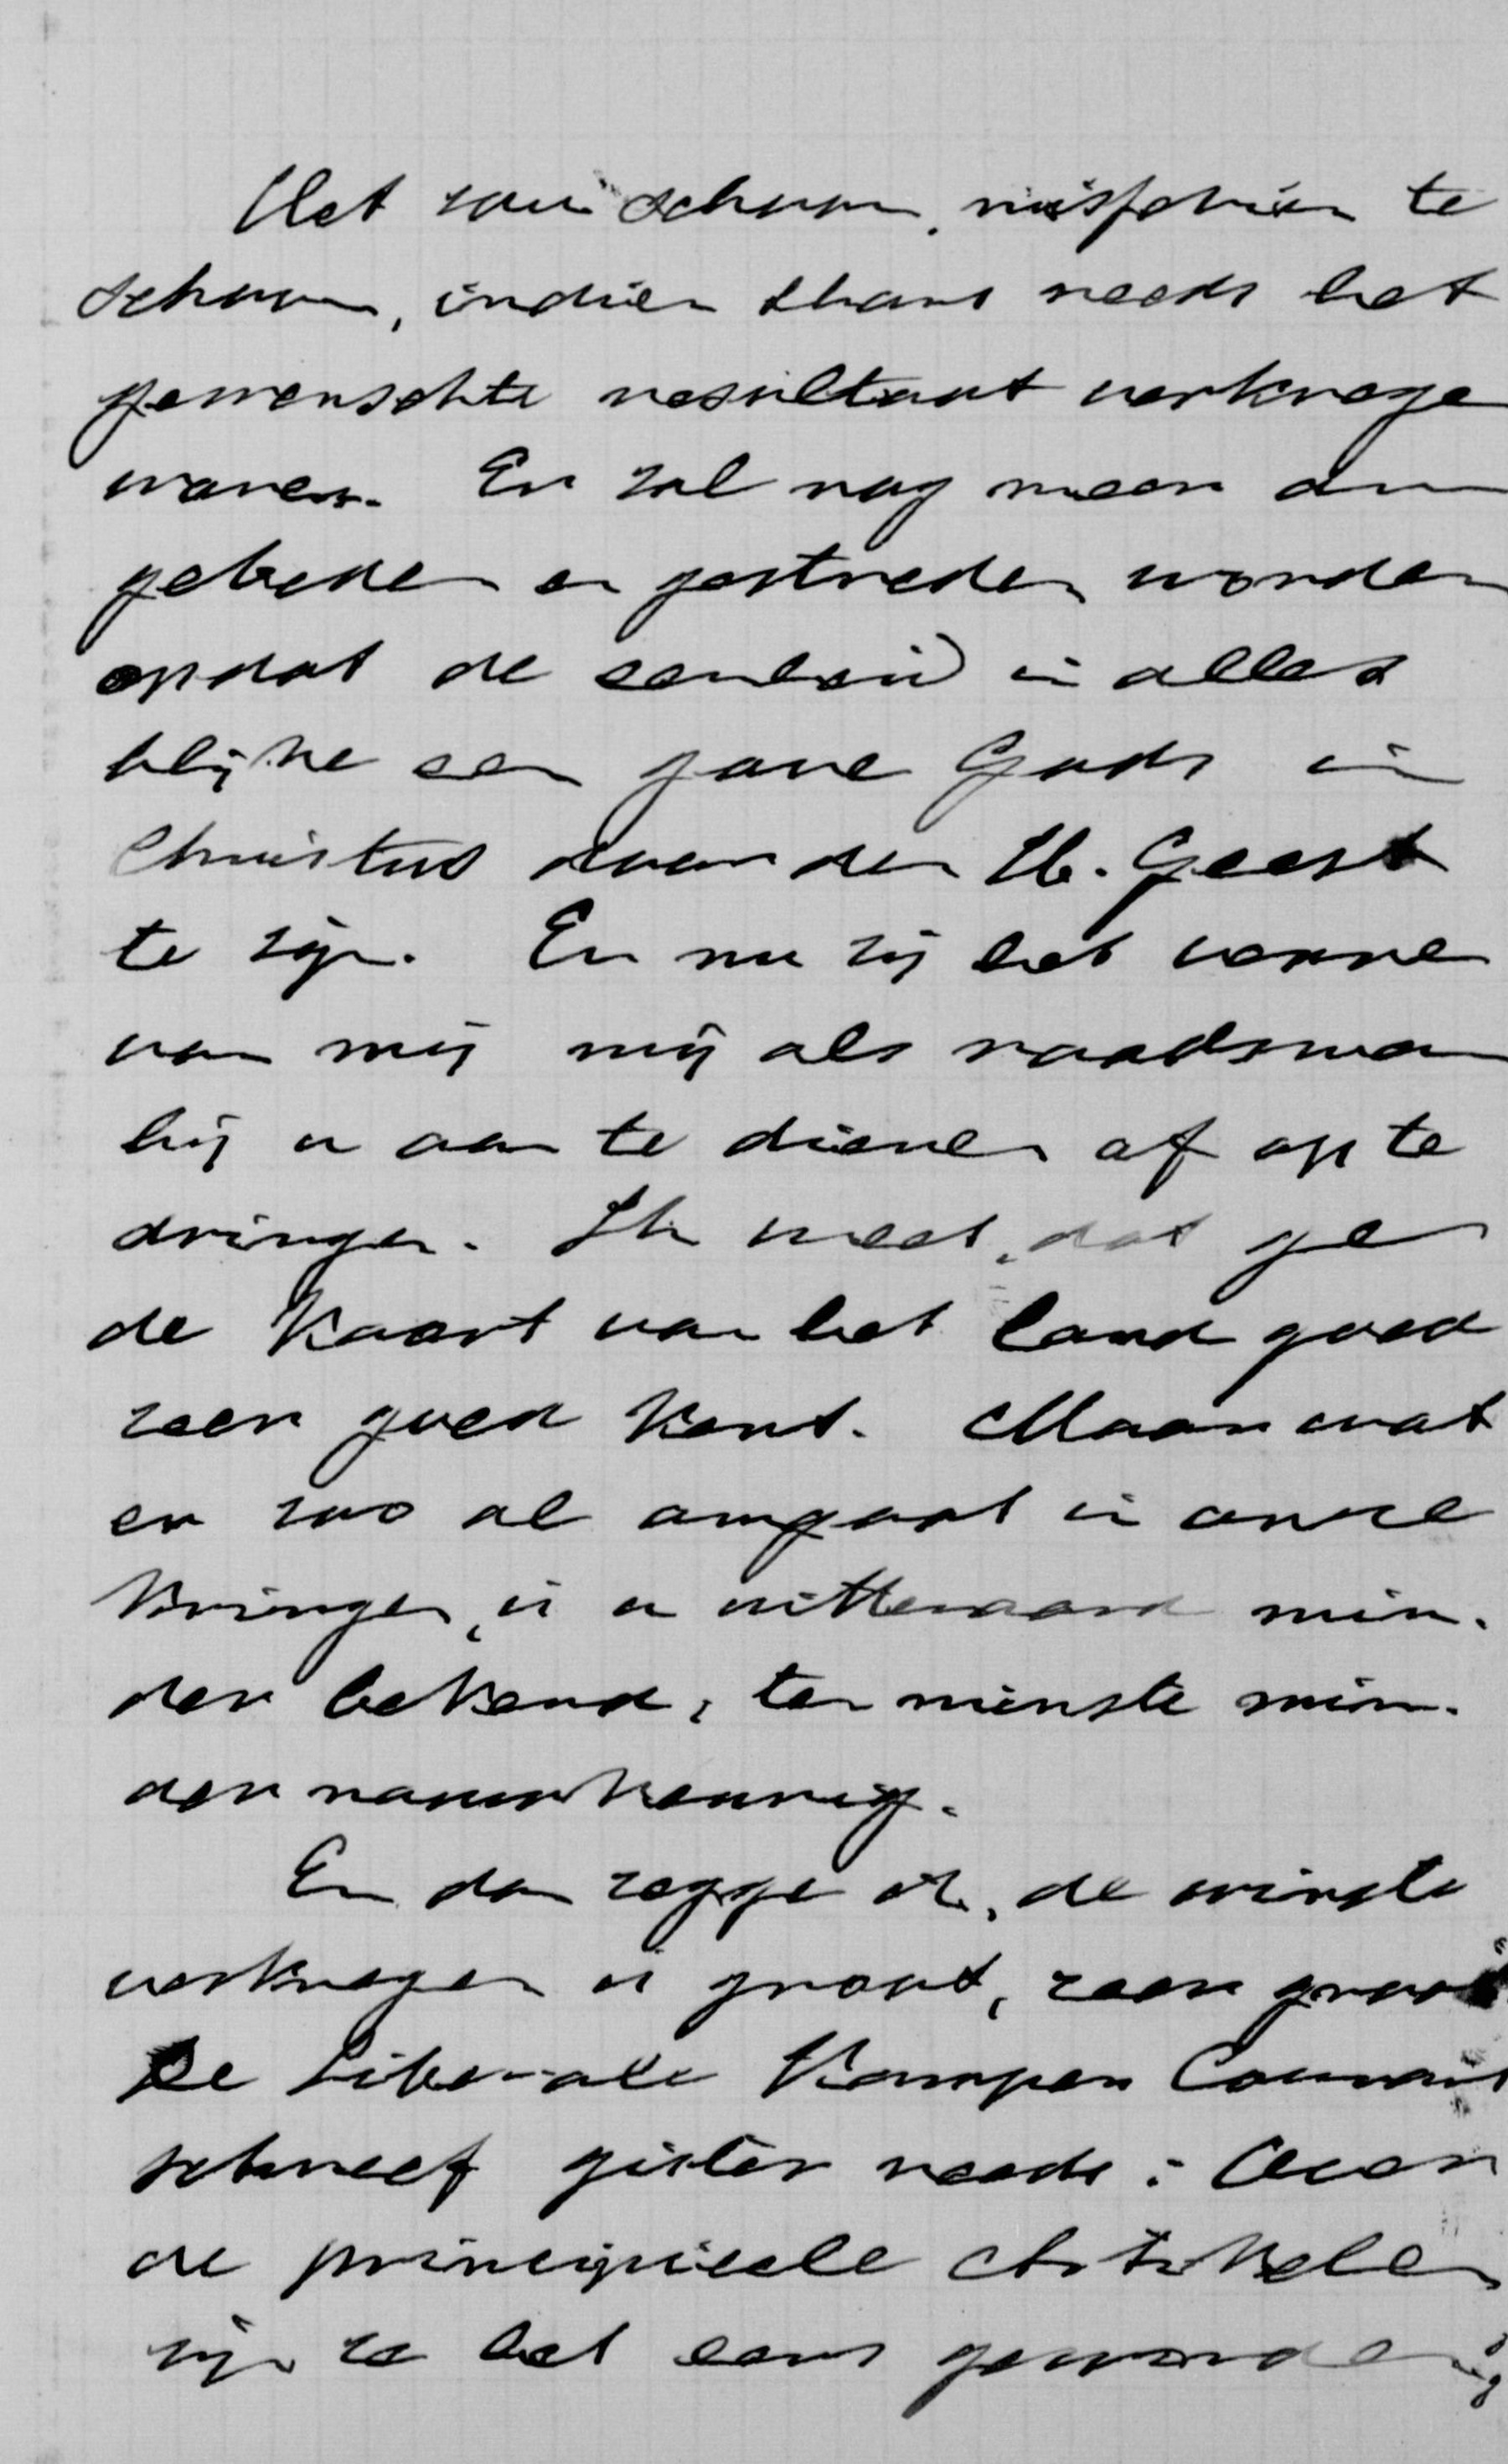 Het zou schoon, misschien te
schoon, indien thans reeds het
gewenschte resultaat verkregen
waren. Er zal nog meer den
gebeden en gestreden worden
opdat de eenheid in alles
blijke een gave Gods in
Christus door den H. Geest
te zijn. En nu zij het verre
van mij mij als raadsman
bij u aan te dienen of op te
dringen. Ik weet, dat ge
de kaart van het land goed
zeer goed kent. Maar wat
er zoo al omgaat in onze
kringen, is u uitteraard min-
der bekend, ten minste min-
der nauwkeurig.
En dan zegge ik, de winste
verkregen is groot, zeer groot
De liberale Kamper Courant
schreef gister reeds: Over
de principieele Artikelen
zijn ze het eens geworden;